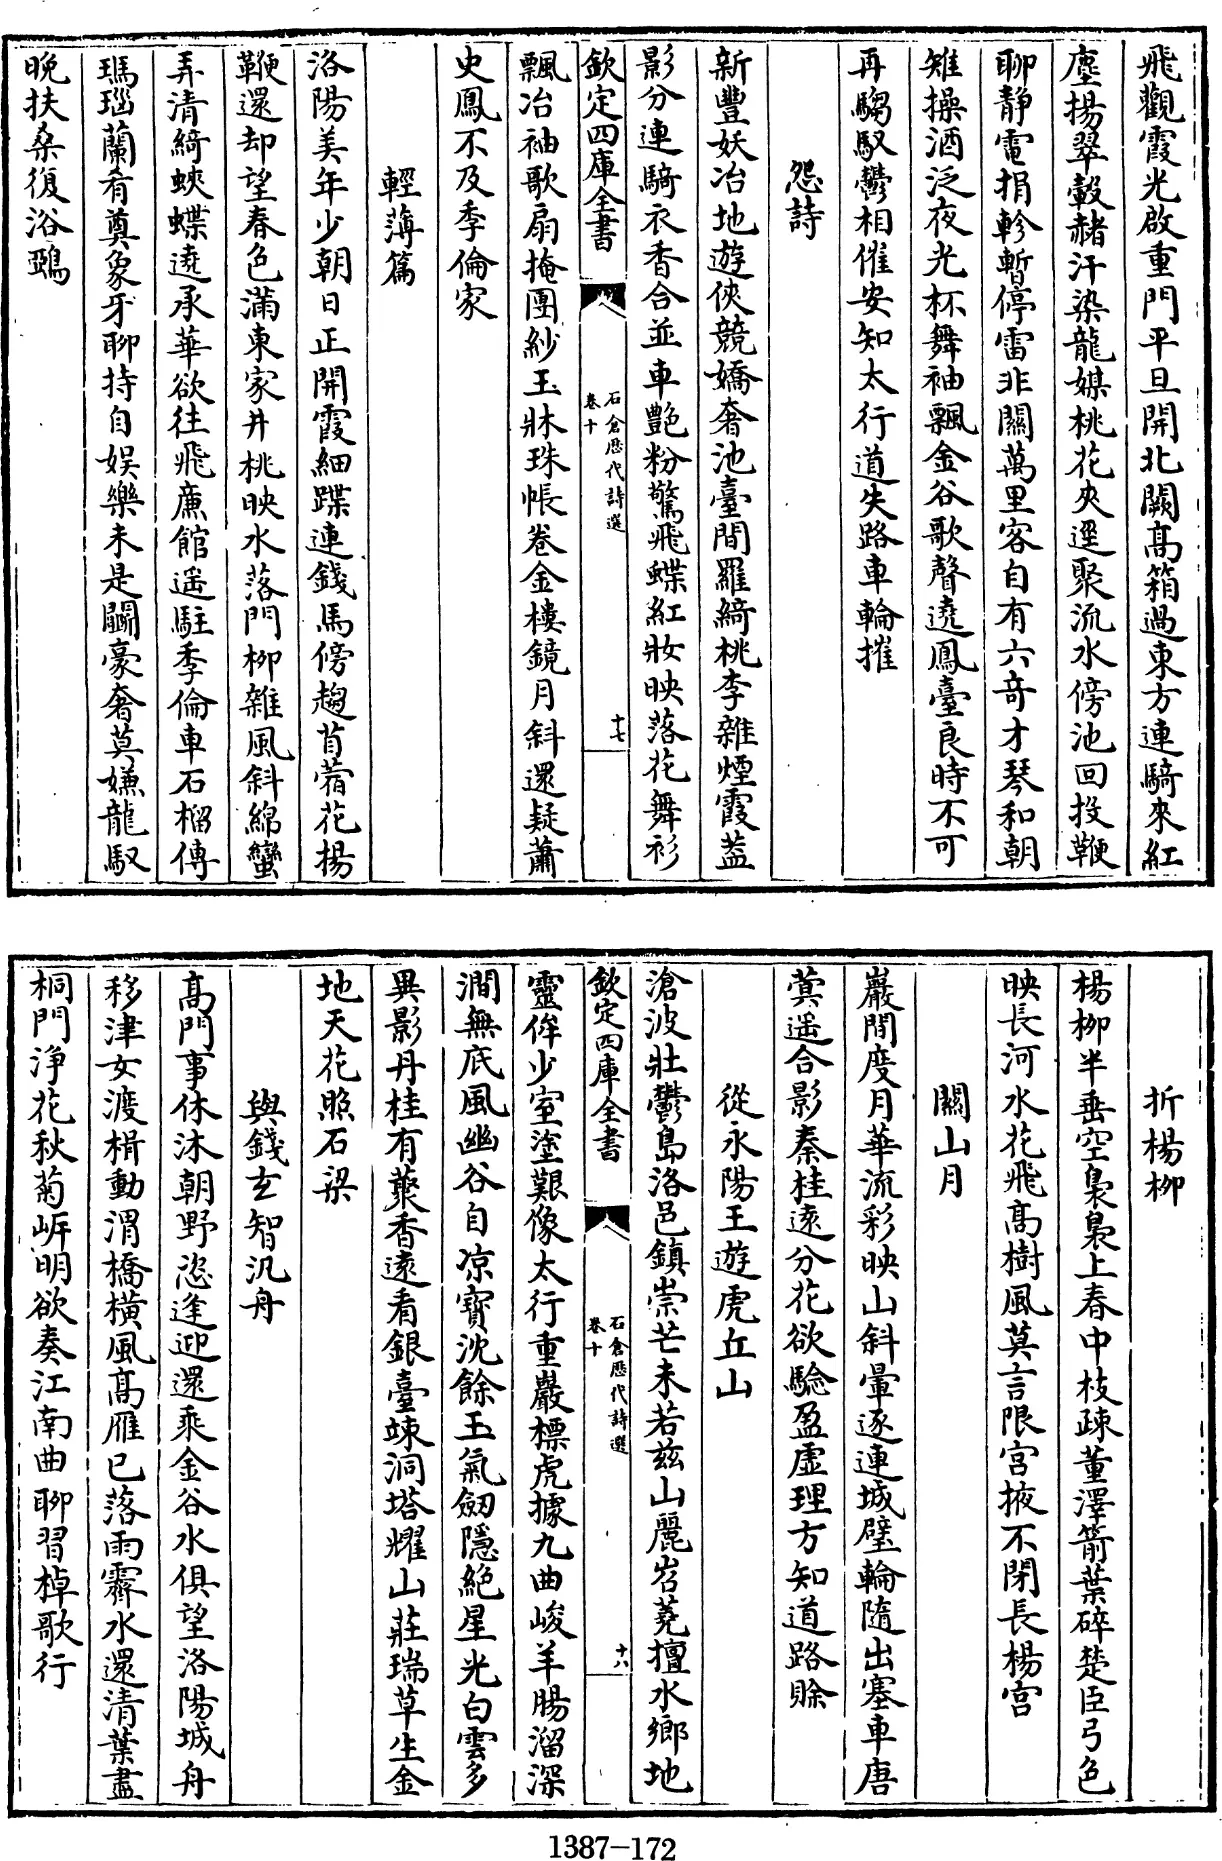 飛觀霞光啟重門平旦開北闕高箱過東方連騎來紅
塵揚翠轂赭汗染龍媒桃花夾逕聚流水傍池回投鞭
聊靜電捐軫暫停雷非關萬里客自有六竒才琴和朝
雉操酒泛夜光杯舞袖飄金谷歌聲遶鳳臺良時不可
再騶馭鬱相催安知太行道失路車輪摧
怨詩
新豐妖冶地遊俠競嬌奢池臺間羅綺桃李雜煙霞葢
影分連騎衣香合並車艶粉驚飛蝶紅妝映落花舞衫
欽定四庫全書
石倉歴代詩選
卷十
十七
飄冶袖歌扇掩團紗玉牀珠帳卷金樓鏡月斜還疑蕭
史鳳不及季倫家
輕薄篇
洛陽美年少朝日正開霞細蹀連錢馬傍趨苜蓿花揚
鞭還却望春色滿東家井桃映水落門栁雜風斜綿蠻
弄清綺蛺蝶遶承華欲往飛廉館遥駐季倫車石榴傳
瑪瑙蘭肴奠象牙聊持自娯樂未是鬭豪奢莫嫌龍馭
晚扶桑復浴鵶
折楊栁
楊栁半垂空裊裊上春中枝疎董澤箭葉碎楚臣弓色
映長河水花飛髙樹風莫言限宫掖不閉長楊宫
關山月
巖間度月華流彩映山斜暈逐連城璧輪隨出塞車唐
蓂遥合影秦桂遠分花欲驗盈虛理方知道路賒
從永陽王遊虎丘山
滄波壯鬱島洛邑鎮崇芒未若兹山麗岧嶤擅水鄉地
欽定四庫全書
石倉歴代詩選
卷十
十八
靈侔少室塗艱像太行重巖標虎據九曲峻羊腸溜深
澗無底風幽谷自凉寳沈餘玉氣劒隱絶星光白雲多
異影丹桂有藂香遠看銀臺竦洞塔耀山莊瑞草生金
地天花照石梁
與錢玄智汎舟
髙門事休沐朝野恣逢迎還乘金谷水俱望洛陽城舟
移津女渡楫動渭橋橫風髙雁已落雨霽水還清葉盡
桐門淨花秋菊岍明欲奏江南曲聊習棹歌行
1387-172